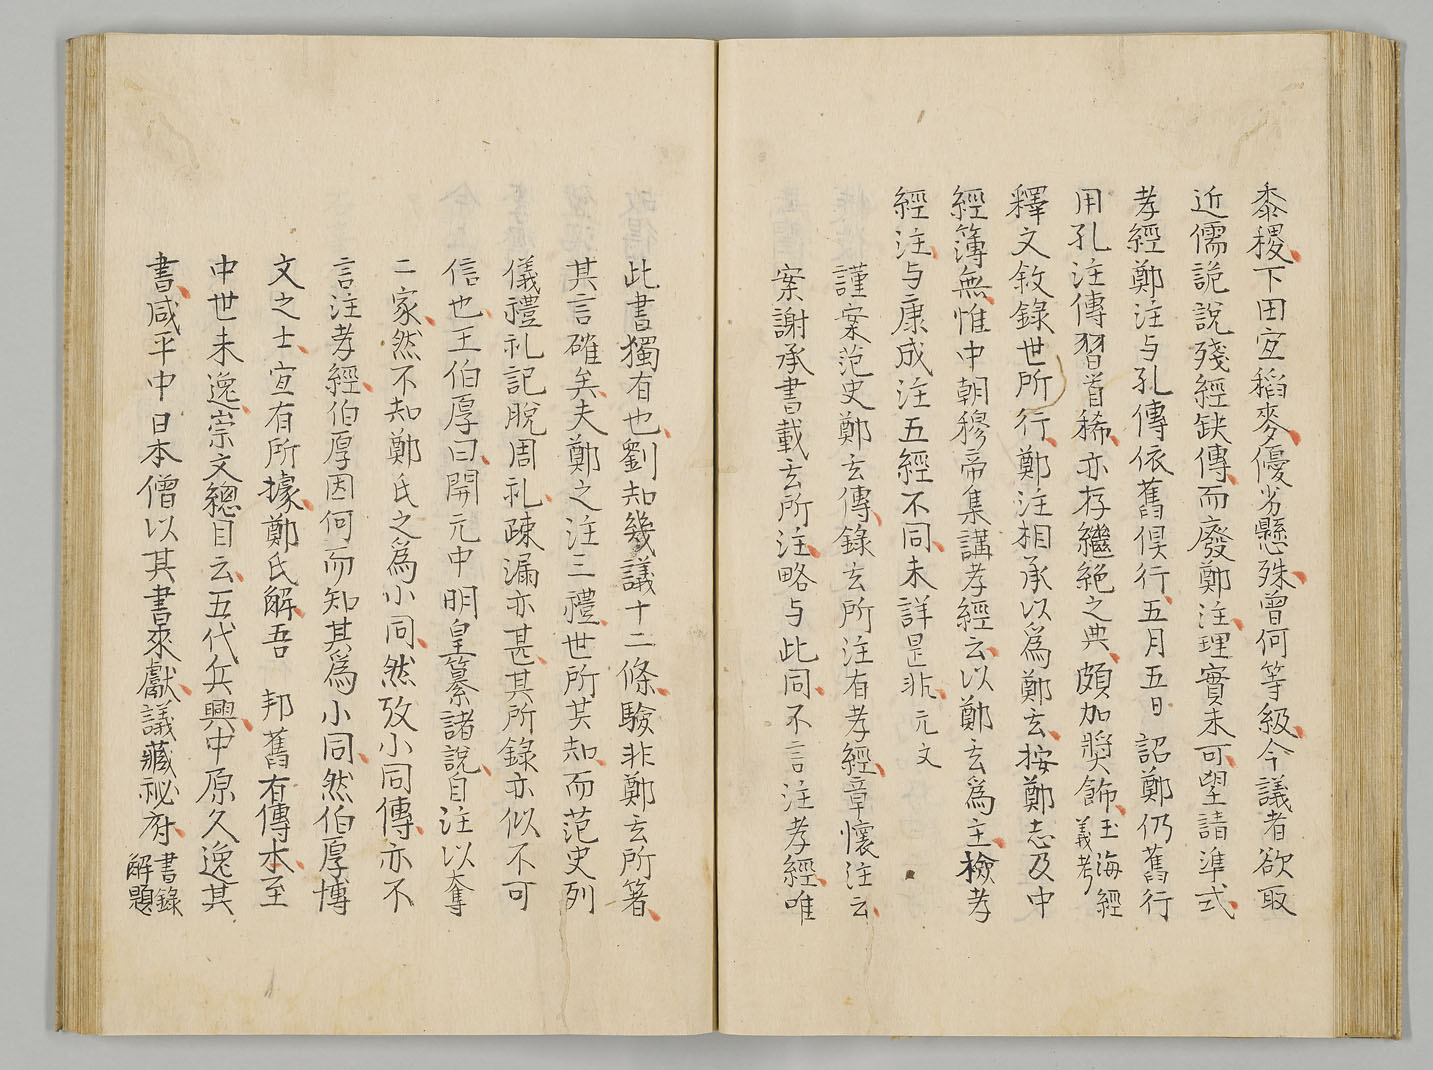 黍稷下田宜稻麥優劣懸殊曾何等級今議者欲取
近儒詭說殘經缺傳而廢鄭注理實未可望請準式
孝經鄭注与孔傳依舊俱行五月五日詔鄭仍舊行
用孔注傳習者稀亦存繼絕之典頗加奬飾玉海經義考
釋文敘錄世所行鄭注相承以爲鄭玄按鄭志及中
經簿無惟中朝穆帝集講孝經云以鄭玄爲主檢孝
經注与康成注五經不同未詳是非元文
謹案范史鄭玄傳錄玄所注有孝經章懷注云
案謝承書載玄所注略与此同不言注孝經唯
此書獨有也劉知幾議十二條驗非鄭玄所著
其言確矣夫鄭之注三禮世所共知而范史列
儀禮礼記脫周礼疎漏亦甚其所錄亦似不可
信也王伯厚曰開元中明皇纂諸說自注以奪
二家然不知鄭氏之爲小同然攷小同傳亦不
言注孝經伯厚因何而知其爲小同然伯厚博
文之士宜有所據鄭氏解吾 邦舊有傳本至
中世未逸崇文總目云五代兵興中原久逸其
書咸平中日本僧以其書來獻議藏祕府書錄解題